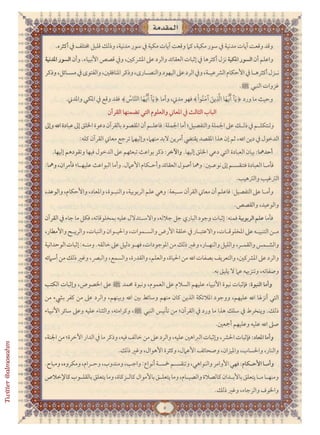 المقدمة
وقد وقعت آيات مدنية في سور مكية، كما وقعت آيات مكية في سور مدنية، وذلك قليل مختلف في أكثره.
واعلم أن السور المكية نزل أكثرها في إثبات العقائد والرد على المشركين، وفي قصص الأنبياء. وأن السور المدنية
نزل أكثرها في الأحكام الشرعية، وفي الرد على اليهود والنصارى، وذكر المنافقين، والفتوى في مسائل، وذكر
غزوات النبي ﷺ.
وحيث ما ورد ﴿يَا أَيُّهَا الَّذِينَ آمَنُوا﴾ فهو مدني، وأما ﴿يَا أَيُّهَا النَّاسُ﴾ فقد وقع في المكي والمدني.
الباب الثالث في المعاني والعلوم التي تضمنها القرآن
ولنتكلم في ذلك على الجملة والتفصيل: أما الجملة: فاعلم أن المقصود بالقرآن دعوة الخلق إلى عبادة الله وإلى
الدخول في دين الله، ثم إن هذا المقصد يقتضي أمرين لابد منهما، وإليهما ترجع معاني القرآن كله:
أحدهما: بيان العبادة التي دعي الخلق إليها. والآخر: ذكر بواعث تبعثهم على الدخول فيها وتقودهم إليها.
فأما العبادة فتنقسم إلى نوعين، وهما أصول العقائد وأحكام الأعمال. وأما البواعث عليها: فأمران، وهما:
الترغيب والترهيب.
وأما على التفصيل: فاعلم أن معاني القرآن سبعة: وهي علم الربوبية، والنبوة، والمعاد، والأحكام، والوعد،
والوعيد، والقصص.
فأما علم الربوبية فمنه: إثبات وجود الباري جل جلاله، والاستدلال عليه بمخلوقاته، فكل ما جاء في القرآن
من التنبيه على المخلوقات، والاعتبار في خلقة الأرض والسموات، والحيوان والنبات، والرياح والأمطار،
والشمس والقمر، والليل والنهار، وغير ذلك من الموجودات، فهو دليل على خالقه. ومنه: إثبات الوحدانية
والرد على المشركين، والتعريف بصفات الله من الحياة، والعلم، والقدرة، والسمع، والبصر، وغير ذلك من أسمائه
وصفاته، وتنزيهه عما لا يليق به.
وأما النبوة: فإثبات نبوة الأنبياء عليهم السلام على العموم، ونبوة محمد ﷺ على الخصوص، وإثبات الكتب
التي أنزلها الله عليهم، ووجود الملائكة الذين كان منهم وسائط بين الله وبينهم، والرد على من كفر بشيء من
ذلك. وينخرط في سلك هذا ما ورد في القرآن: من تأنيس النبي ﷺ، وكرامته، والثناء عليه وعلى سائر الأنبياء
صلى الله عليه وعليهم أجمعين.
وأما المعاد: فإثبات الحشر، وإثبات البراهين عليه، والرد على من خالف فيه، وذكر ما في الدار الآخرة: من الجنة،
والنار، والحساب، والميزان، وصحائف الأعمال، وكثرة الأهوال، وغير ذلك.
وأما الأحكام: فهي الأوامر والنواهي، وتنقسم خمسة أنواع: واجب، ومندوب، وحرام، ومكروه، ومباح.
ومنها ما يتعلق بالأبدان كالصلاة والصيام، وما يتعلق بالأموال كالزكاة، وما يتعلق بالقلوب كالإخلاص
والخوف والرجاء، وغير ذلك.